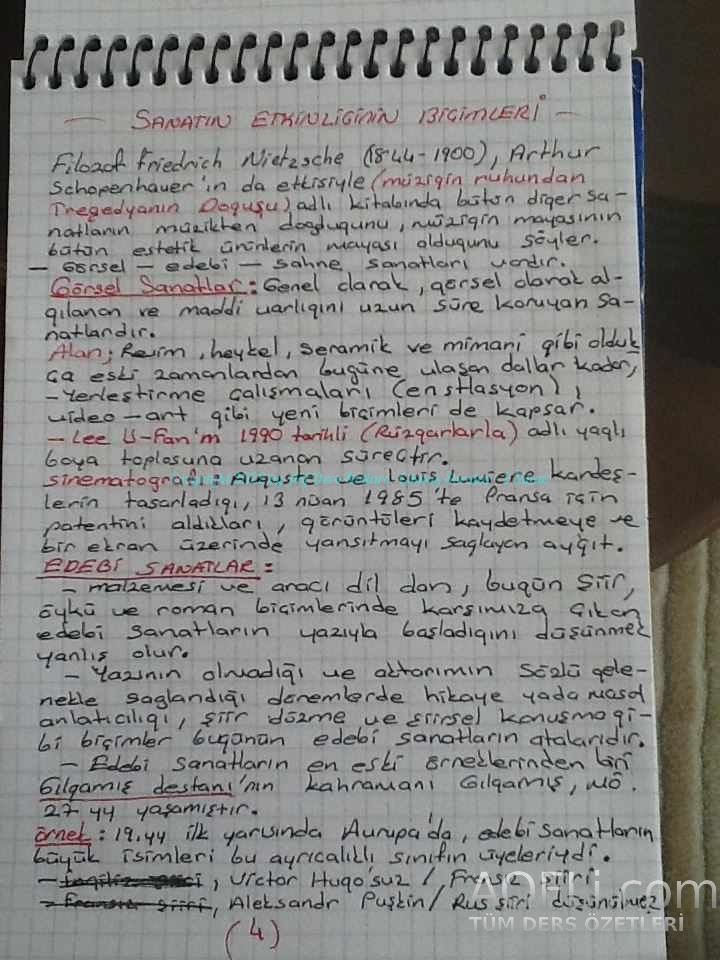 — SANATIN ETKİNLİGİNİN BİÇİMLERİ —
Filozof Friedrich Nietzsche (1844-1900), Arthur
Schopenhauer'ın da etkisiyle (müziğin ruhundan
Tregedyanın Doguşu) adlı kitabında bütün diger sa-
natların müzikten doğduğunu, müziğin mayasının
bütün estetik ürünlerin mayası oldugunu söyler.
— Görsel — edebi — sahne sanatları vardır.
Görsel Sanatlar: Genel olarak, görsel olarak al-
gılanan ve maddi varlıgını uzun süre koruyan sa-
natlardır.
Alan; Resim, heykel, seramik ve mimari gibi olduk
ça eski zamanlardan bugüne ulaşan dallar kadar,
-Yerleştirme çalışmaları (enstlasyon),
video-art gibi yeni biçimleri de kapsar.
- Lee U-Fan'ın 1990 tarihli (Rüzgarlarla) adlı yaglı
boya toplosuna uzanan süreçtir.
Sinematografı: Auguste ve Louis Lumiere kardeş-
lerin tasarladıgı, 13 nisan 1985'te Fransa için
patentini aldıkları, görüntüleri kaydetmeye ve
bir ekran üzerinde yansıtmayı saglayan aygıt.
EDEBİ SANATLAR:
- malzemesi ve aracı dil dan, bugün şiir,
öykü ve roman biçimlerinde karşımıza çıkan
edebi sanatların yazıyla başladıgını düşünmek
yanlış olur.
- Yazının olmadığı ve aktarımın sözlü gele-
nekle saglandığı dönemlerde hikaye yada masal
anlatıcılıgı, şiir düzme ve şiirsel konuşma gi-
bi biçimler bugünün edebi sanatların atalarıdır.
- Edebi sanatların en eski örneklerinden biri
Gılgamış destanı'nın kahramanı Gılgamış, MÖ.
27.yy yaşamıştır.
örnek: 19.yy ilk yarısında Avrupa'da, edebi sanatların
büyük isimleri bu ayrıcalıklı sınıfın üyeleriydi.
, Victor Hugo'suz / Fransız şiiri
, Aleksandr Puşkin / Rus şiiri düşünülmez
(4)
AOFCi.com
TÜM DERS ÖZETLERİ